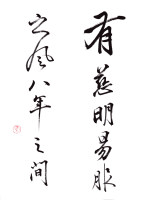 有慈明易服
之风八年之间